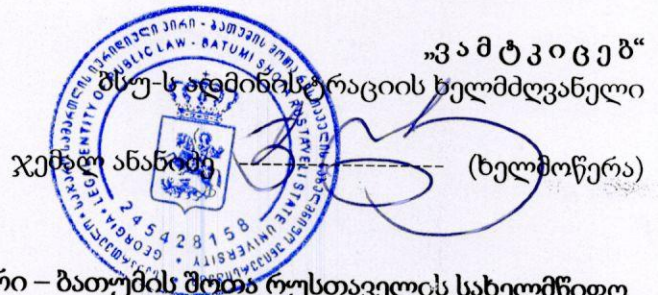 „ვ ა მ ტ კ ი ც ე ბ“
ბსუ-ს ადმინისტრაციის ხელმძღვანელი
ჯემალ ანანიძე ---------------------- (ხელმოწერა)
LEGAL ENTITY OF PUBLIC LAW - BATUMI SHOTA RUSTAVELI STATE UNIVERSITY • GEORGIA •
245428158
რი – ბათუმის შოთა რუსთაველის სახელმწიფო